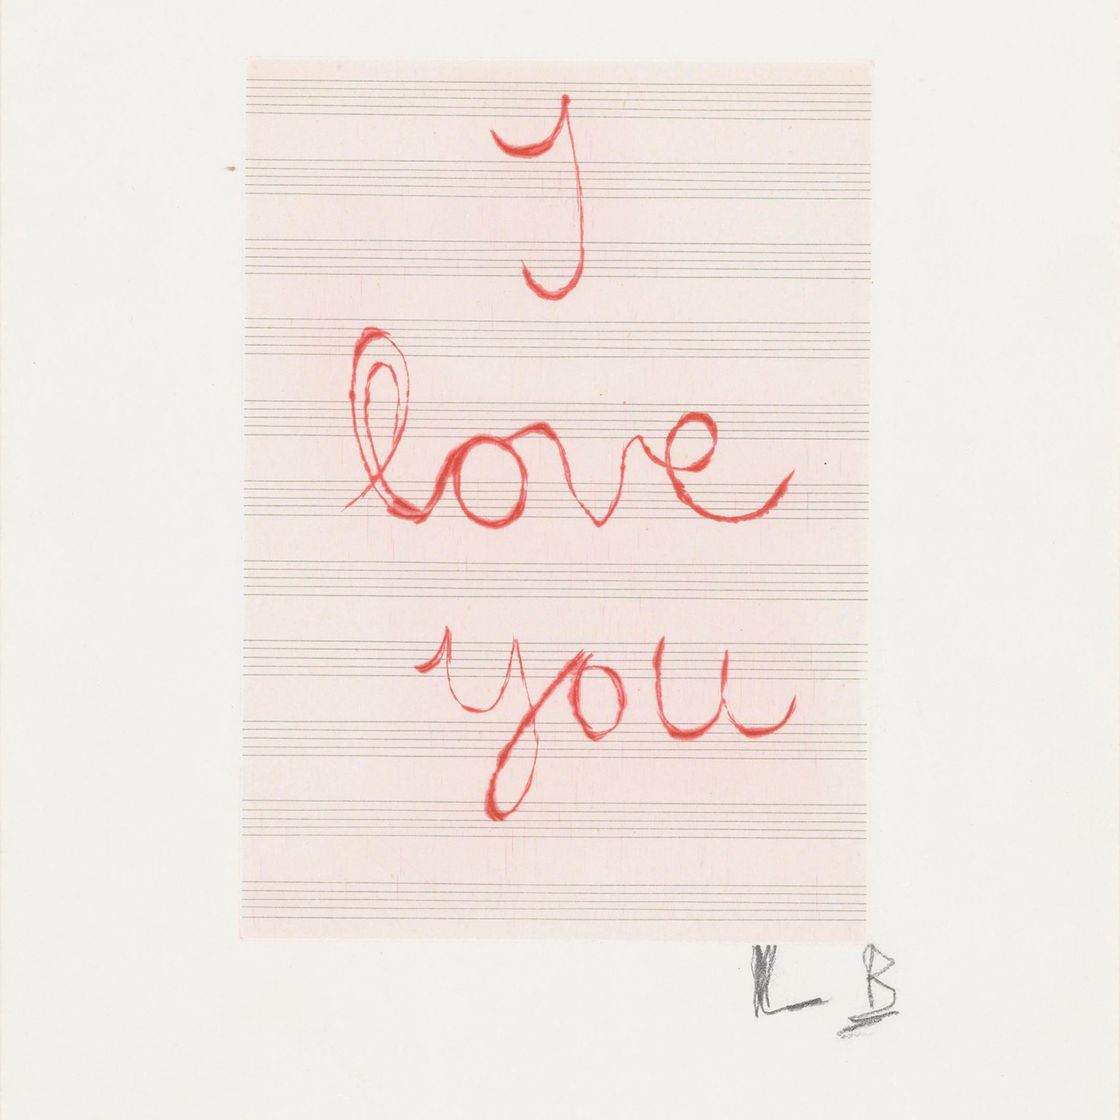 I
love
you
L B